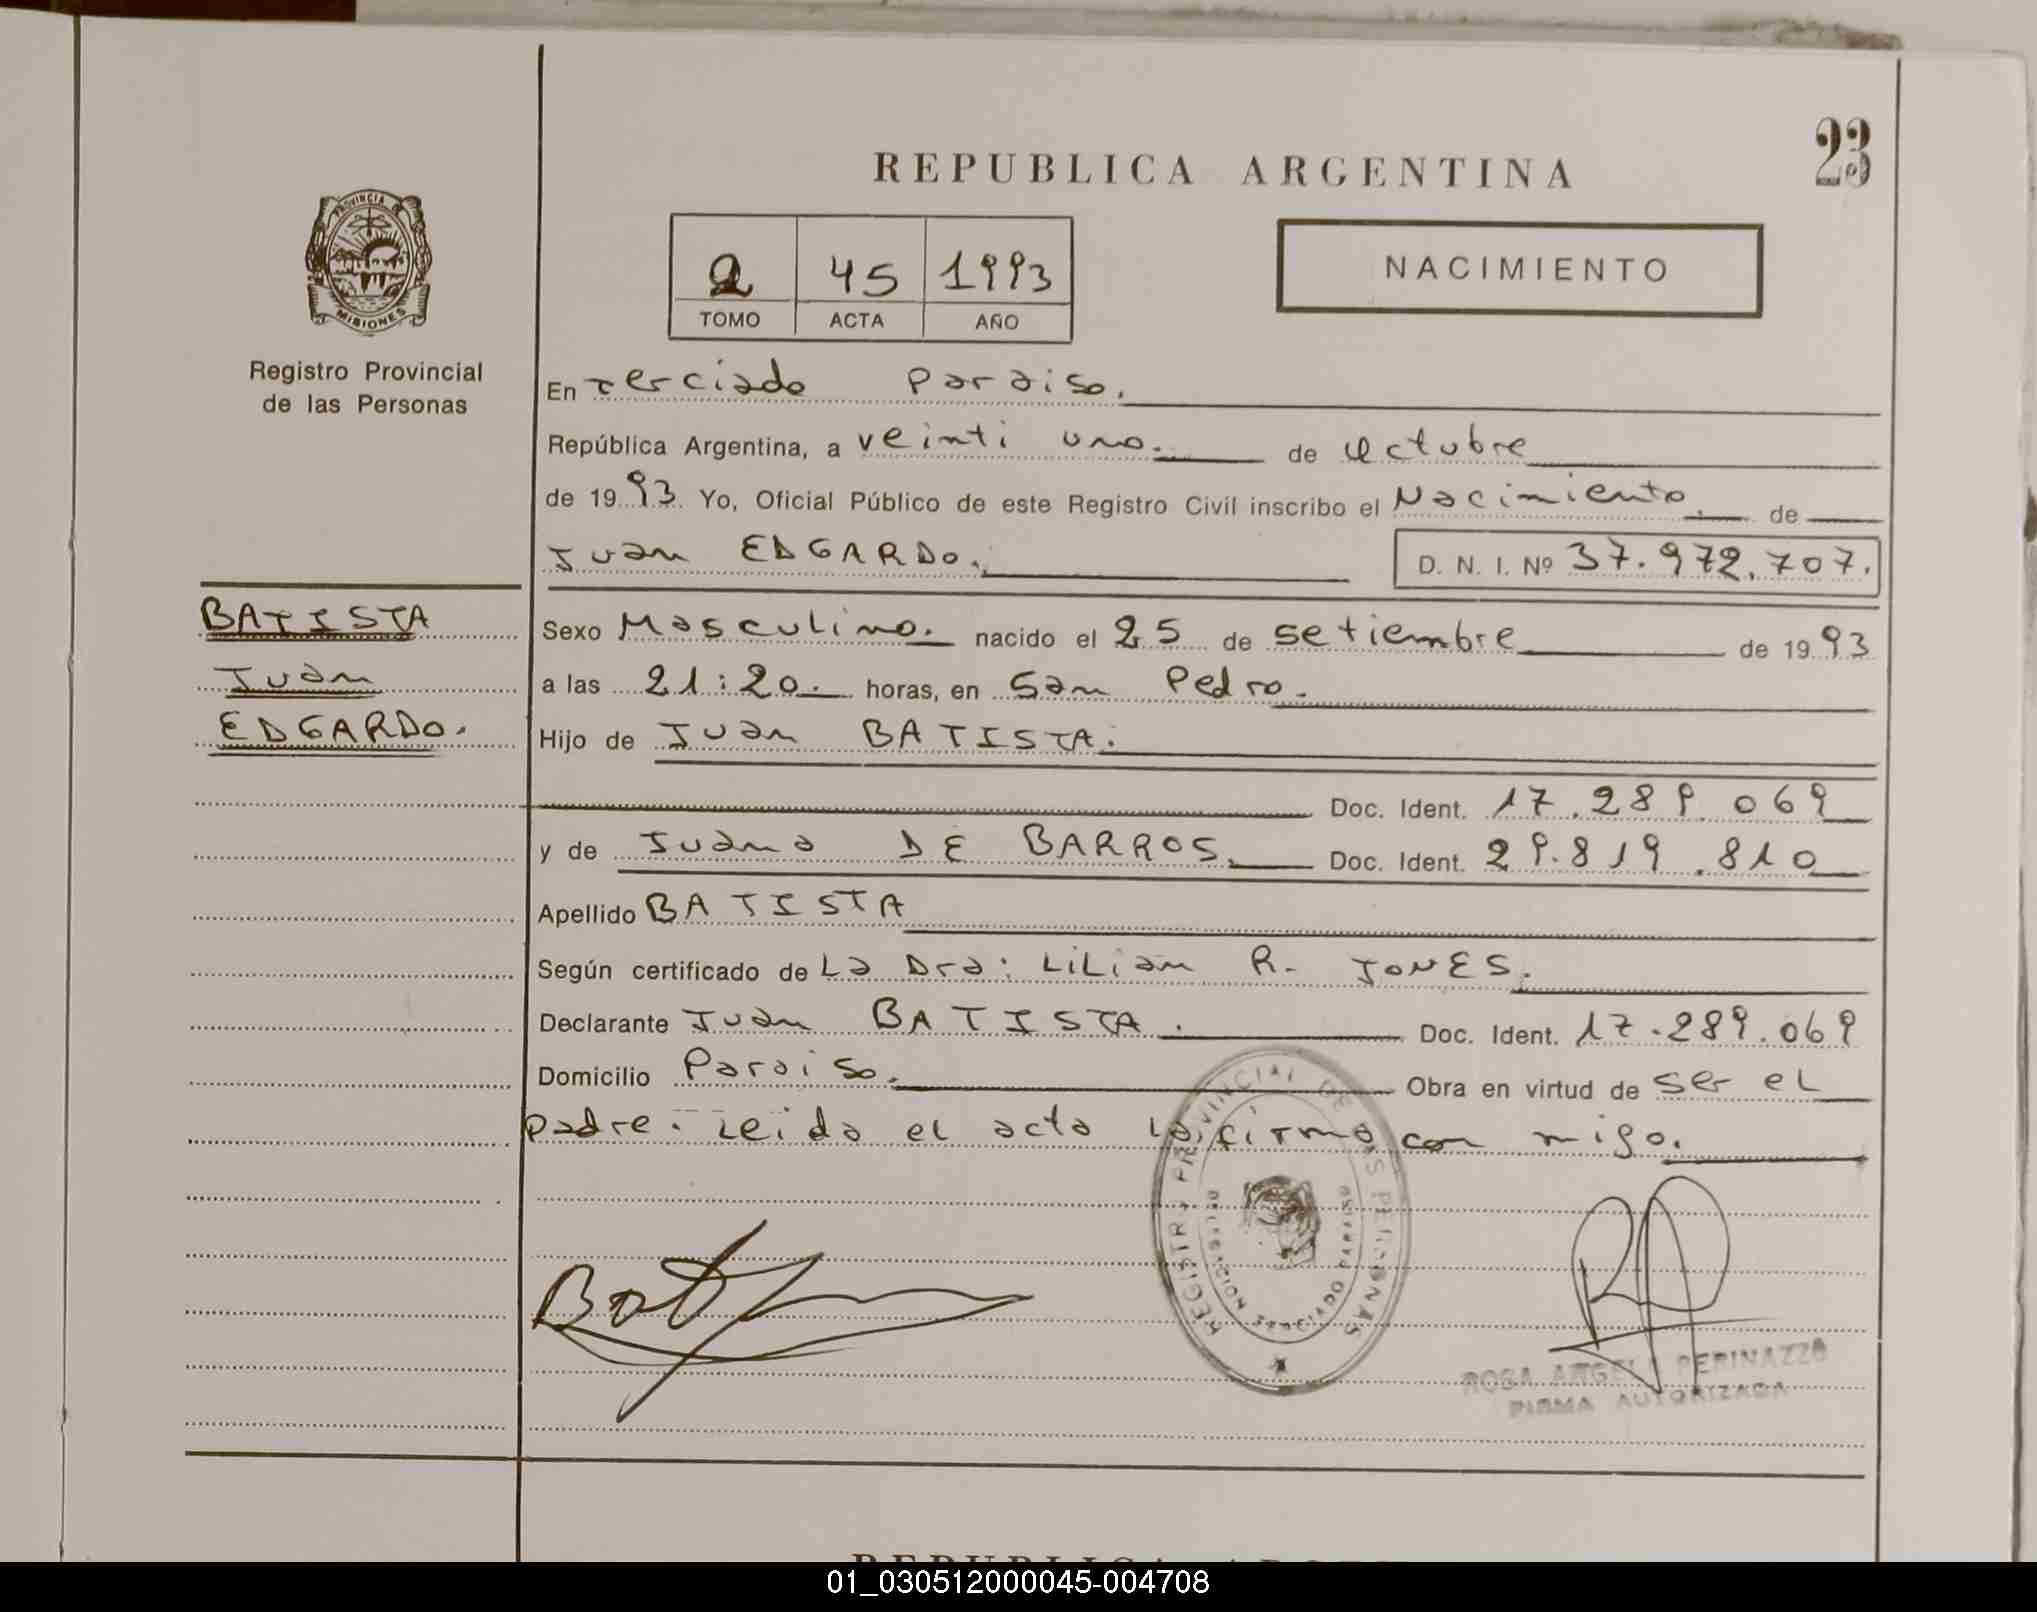 23
REPUBLICA ARGENTINA
PROVINCIA DE
MISIONES
2 45 1993
TOMO ACTA AÑO
NACIMIENTO
Registro Provincial
de las Personas
En Terciado Paraiso.
República Argentina, a veinti uno. de Octubre
de 1993 Yo, Oficial Público de este Registro Civil inscribo el Nacimiento, de
Juan EDGARDO. D. N. I. Nº 37.972.707.
BATISTA
Juan
EDGARDO.
Sexo Masculino. nacido el 25 de setiembre de 1993
a las 21:20. horas, en San Pedro.
Hijo de Juan BATISTA.
Doc. Ident. 17.289.069
y de Juana DE BARROS. Doc. Ident. 29.819.810
Apellido BATISTA
Según certificado de La Dra: LiLian R. JONES.
Declarante Juan BATISTA. Doc. Ident. 17.289.069
Domicilio Paraiso. Obra en virtud de ser el
padre. Leida el acta la firma con migo.
REGISTRO PROVINCIAL DE LAS PERSONAS
DELEGACION TERCIADO PARAISO
ROSA ANGELA PERINAZZO
FIRMA AUTORIZADA
01_030512000045-004708